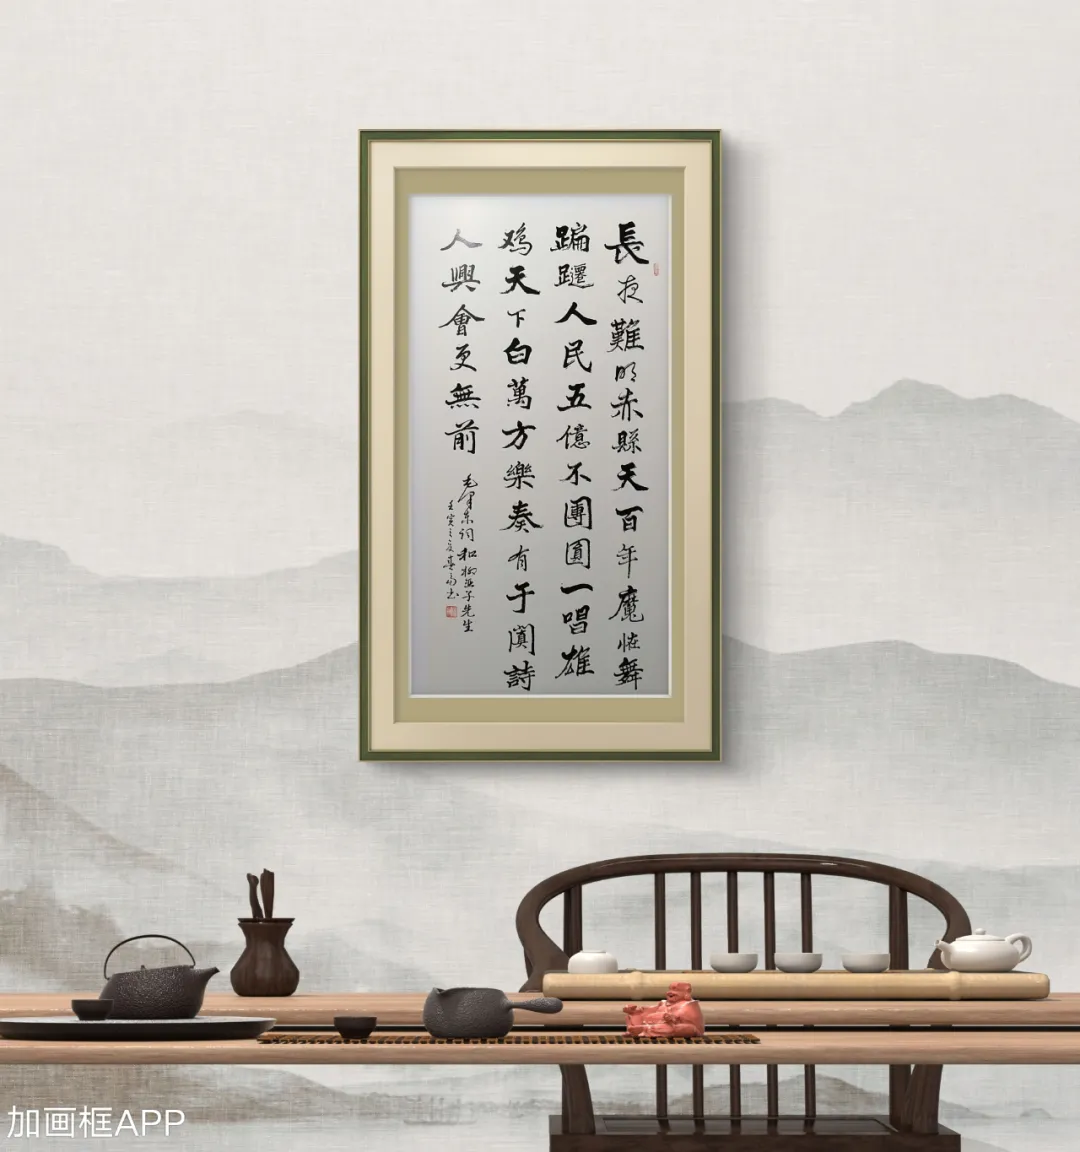 長夜難明赤縣天百年魔怪舞
蹁躚人民五億不團圓一唱雄
鸡天下白萬方樂奏有于闐詩
人興會更無前
毛泽东词和柳亚子先生
壬寅之夏
加画框APP